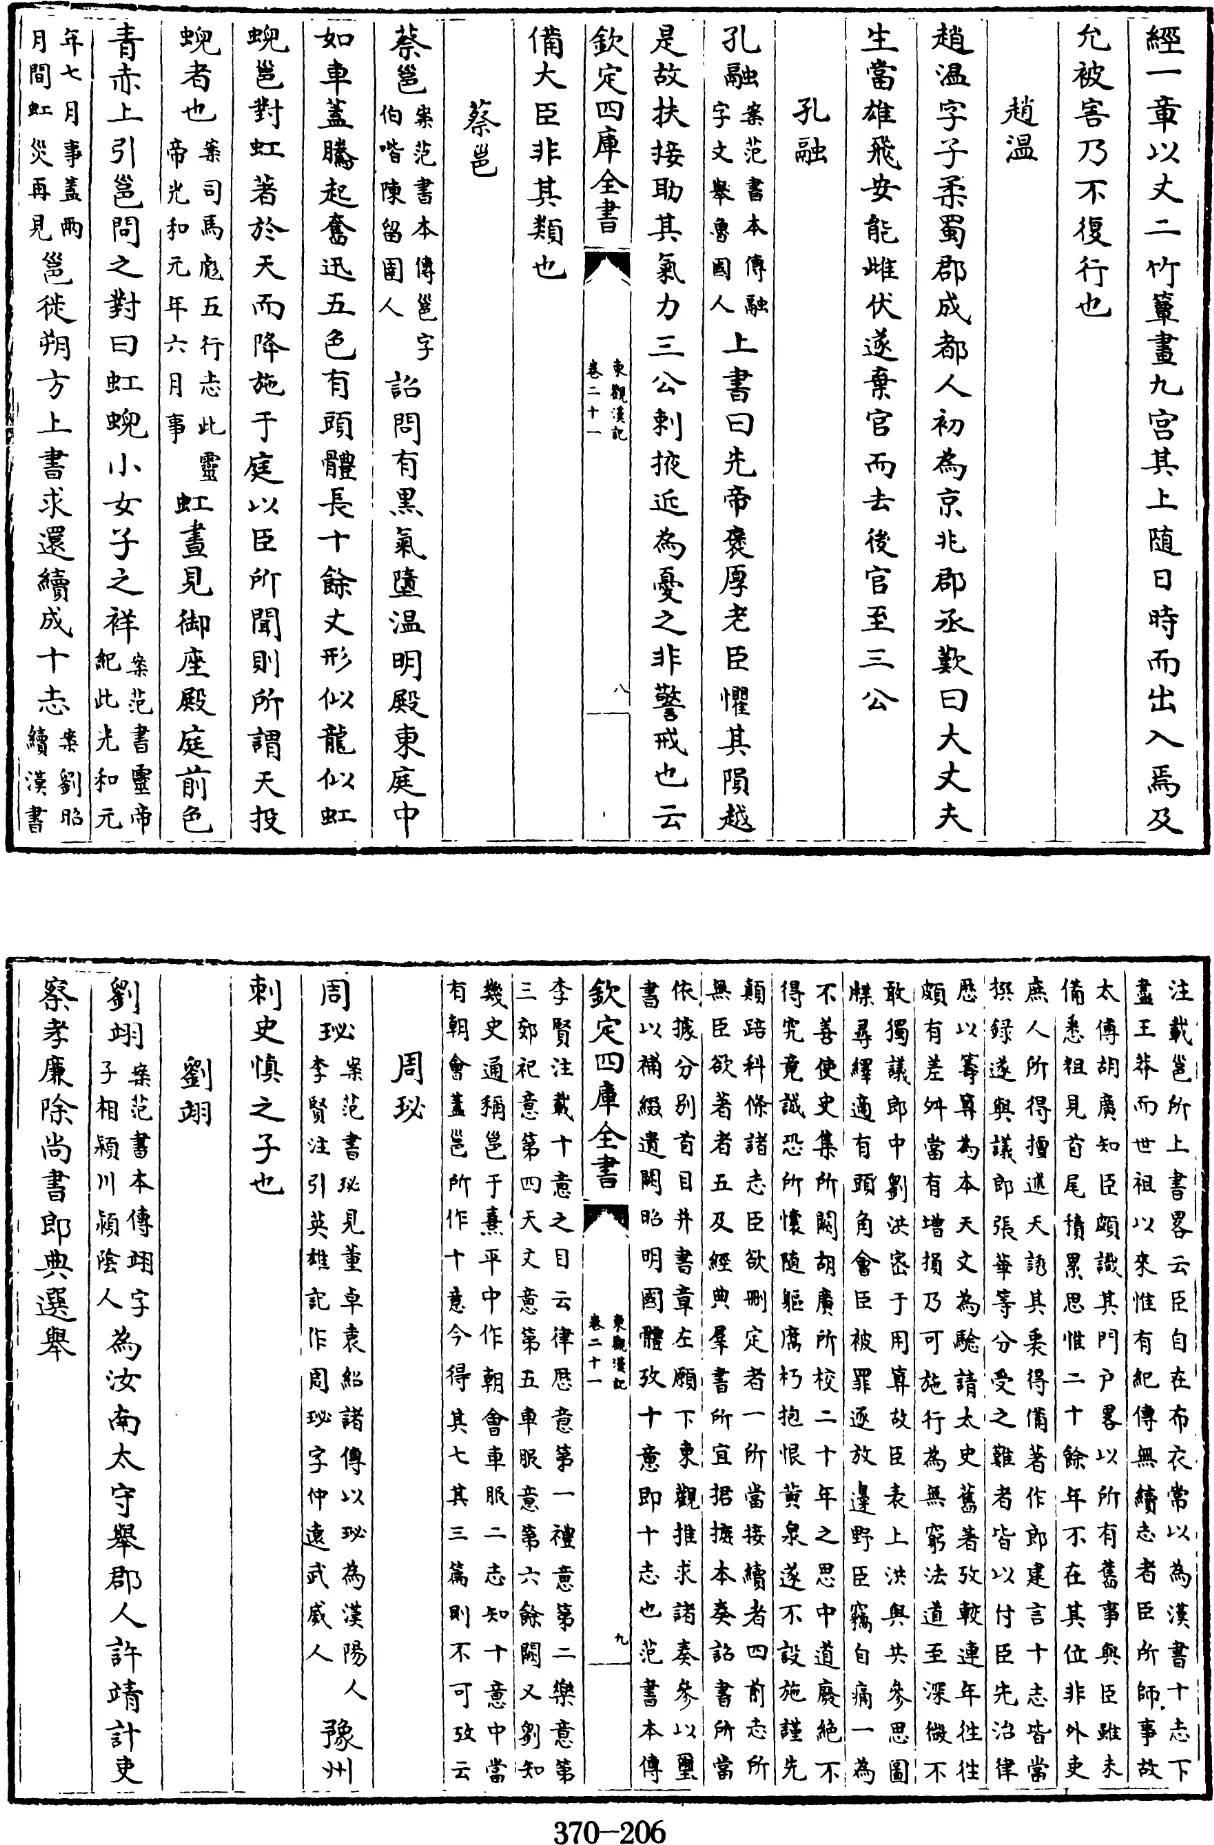 經一章以丈二竹簟畫九宫其上隨日時而出入焉及
允被害乃不復行也
趙温
趙温字子柔蜀郡成都人初為京兆郡丞歎曰大丈夫
生當雄飛安能雌伏遂棄官而去後官至三公
孔融
孔融案范書本傳融字文舉魯國人上書曰先帝褒厚老臣懼其隕越
是故扶接助其氣力三公刺掖近為憂之非警戒也云
欽定四庫全書
東觀漢記
卷二十一
八
備大臣非其類也
蔡邕
蔡邕案范書本傳邕字伯喈陳留圉人詔問有黒氣墮温明殿東庭中
如車蓋騰起奮迅五色有頭體長十餘丈形似龍似虹
蜺邕對虹著於天而降施于庭以臣所聞則所謂天投
蜺者也案司馬彪五行志此靈帝光和元年六月事虹晝見御座殿庭前色
青赤上引邕問之對曰虹蜺小女子之祥案范書靈帝紀此光和元
年七月事蓋兩月間虹災再見邕徙朔方上書求還續成十志案劉昭續漢書
注載邕所上書畧云臣自在布衣常以為漢書十志下
盡王莽而世祖以來惟有紀傳無續志者臣所師事故
太傅胡廣知臣頗識其門户畧以所有舊事與臣雖未
備悉粗見首尾積累思惟二十餘年不在其位非外吏
庶人所得擅述天誘其衷得備著作郎建言十志皆當
撰録遂與議郎張華等分受之難者皆以付臣先治律
厯以籌算為本天文為驗請太史舊著攷較連年往往
頗有差舛當有增損乃可施行為無窮法道至深微不
敢獨議郎中劉洪宻于用算故臣表上洪與共參思圖
牒尋繹適有頭角會臣被罪逐放邊野臣竊自痛一為
不善使史集所闕胡廣所校二十年之思中道廢絶不
得究竟誠恐所懷隨軀腐朽抱恨黄泉遂不設施謹先
顛踣科條諸志臣欲刪定者一所當接續者四前志所
無臣欲著者五及經典羣書所宜捃摭本奏詔書所當
依據分别首目并書章左願下東觀推求諸奏參以璽
書以補綴遺闕昭明國體攷十意即十志也范書本傳
欽定四庫全書
東觀漢記
卷二十一
九
李賢注載十意之目云律厯意第一禮意第二樂意第
三郊祀意第四天文意第五車服意第六餘闕又劉知
幾史通稱邕于熹平中作朝會車服二志知十意中當
有朝會蓋邕所作十意今得其七其三篇則不可攷云
周珌
周珌案范書珌見董卓袁紹諸傳以珌為漢陽人李賢注引英雄記作周珌字仲遠武威人豫州
刺史慎之子也
劉翊
劉翊案范書本傳翊字子相潁川潁陰人為汝南太守舉郡人許靖計吏
察孝廉除尚書郎典選舉
370-206